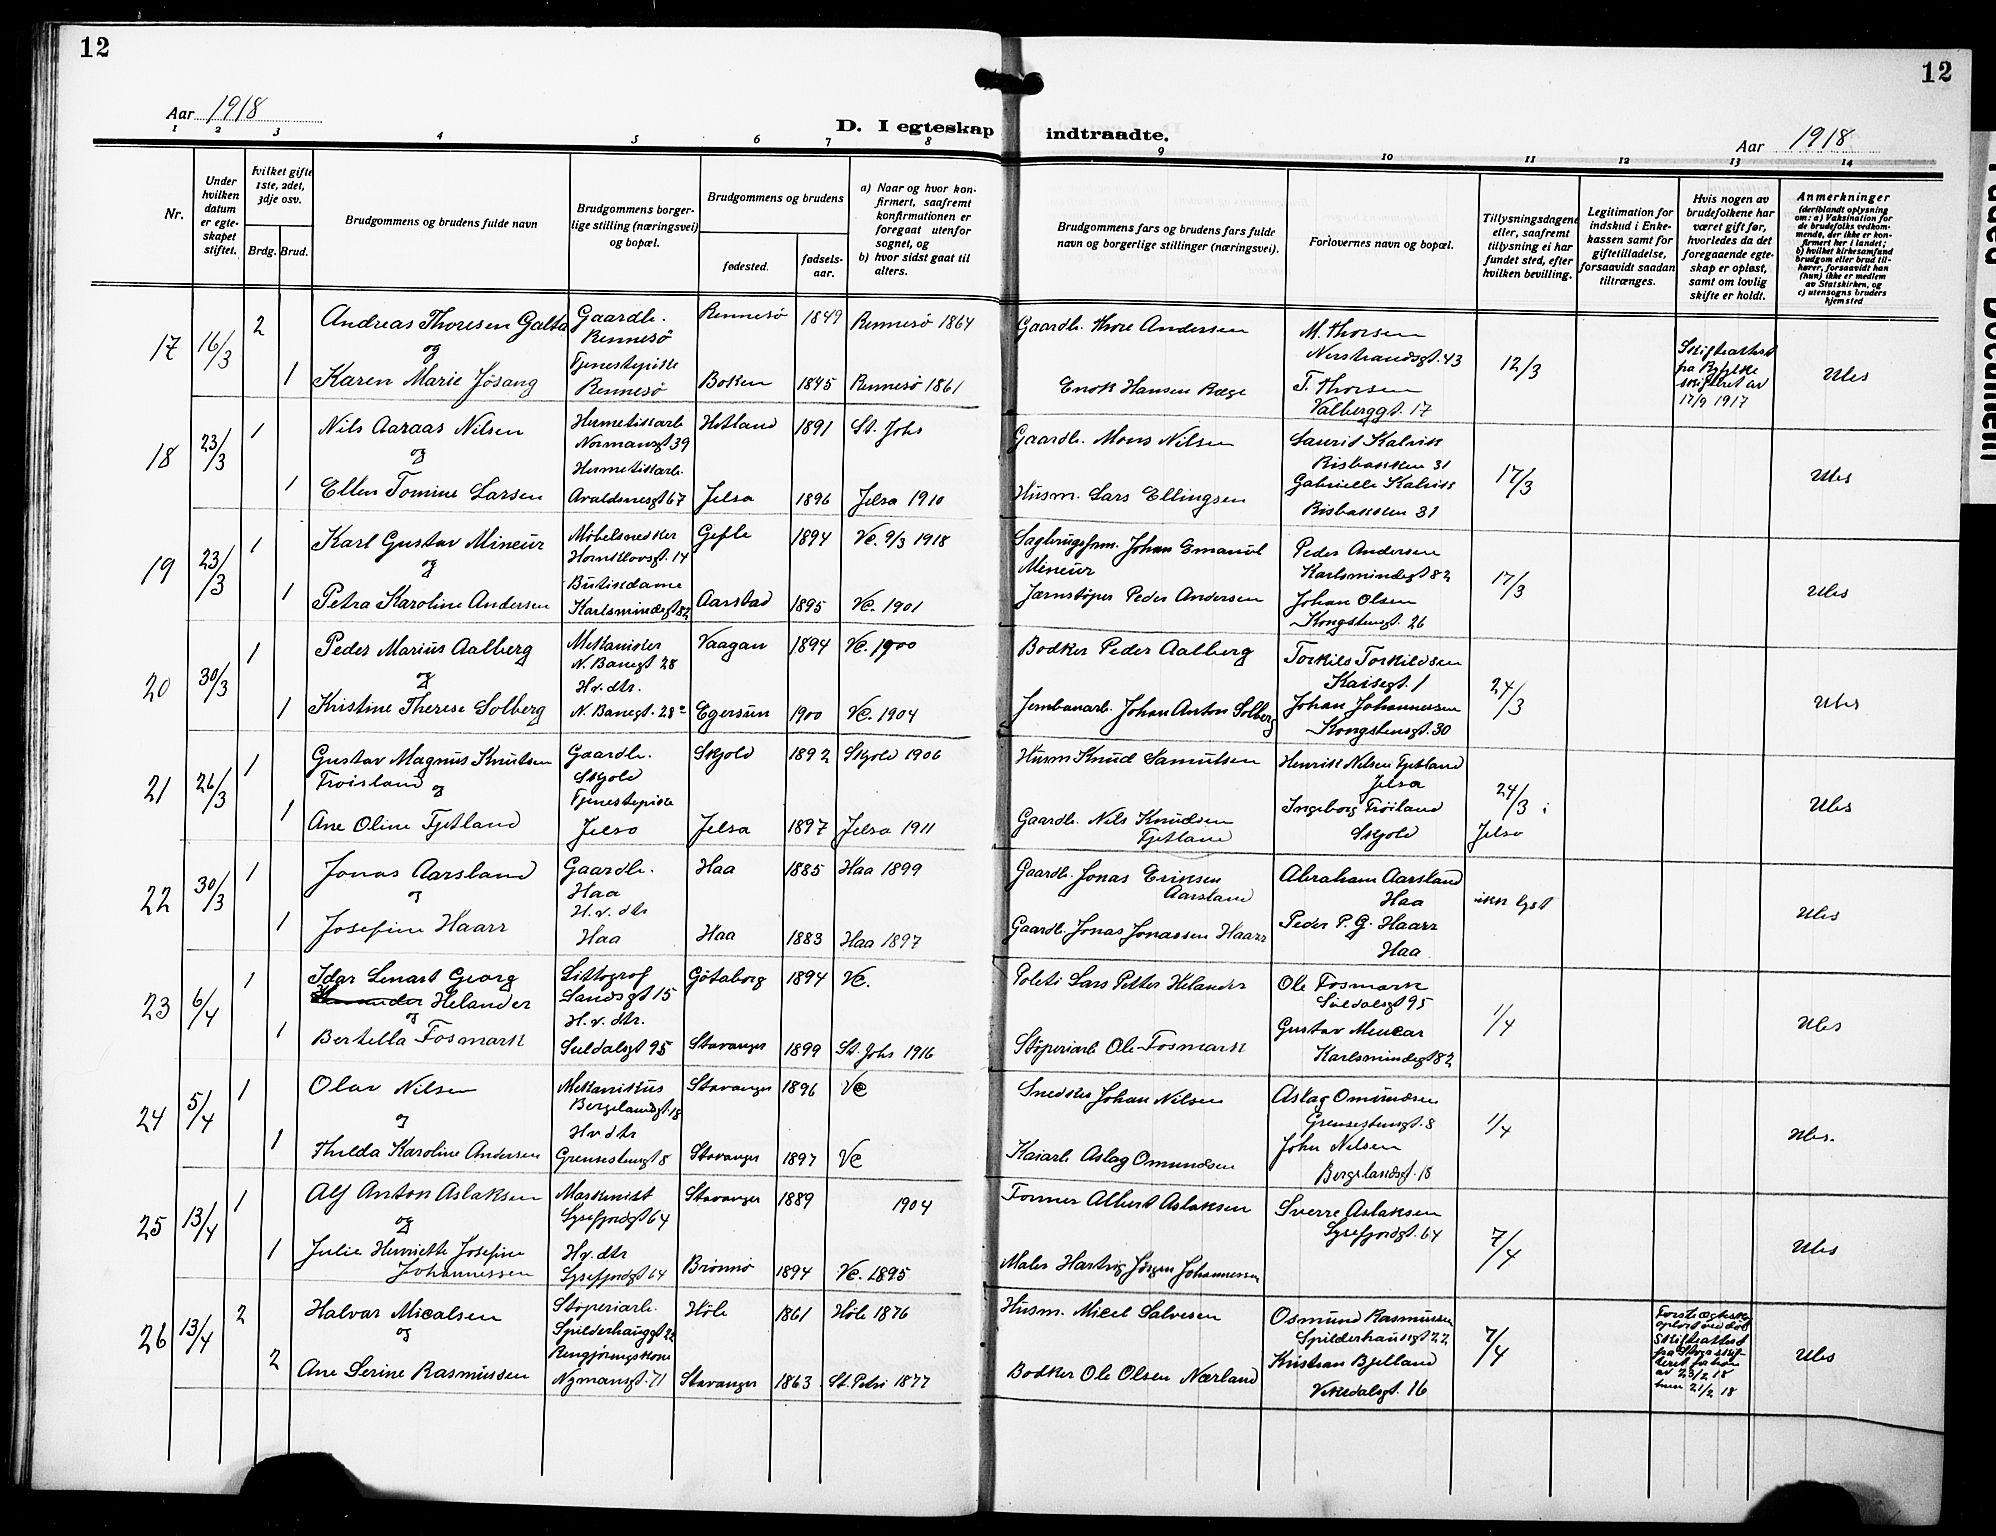 12
12
Aar 1918
D. I egteskap indtraadte.
Aar 1918
1 2 3 4 5 6 7 8 9 10 11 12 13 14
Nr.
Under hvilken datum er egteskapet stiftet.
Hvilket gifte 1ste, 2det, 3dje osv.
Brdg. Brud.
Brudgommens og brudens fulde navn
Brudgommens borgerlige stilling (næringsvei) og bopæl.
Brudgommens og brudens
fødested.
fødselsaar.
a) Naar og hvor konfirmert, saafremt konfirmationen er foregaat utenfor sognet, og
b) hvor sidst gaat til alters.
Brudgommens fars og brudens fars fulde navn og borgerlige stillinger (næringsvei).
Forlovernes navn og bopæl.
Tillysningsdagene eller, saafremt tillysning ei har fundet sted, efter hvilken bevilling.
Legitimation for indskud i Enkekassen samt for giftetilladelse, forsaavidt saadan tiltrænges.
Hvis nogen av brudefolkene har været gift før, hvorledes da det foregaaende egteskap er opløst, samt om lovlig skifte er holdt.
Anmerkninger
(deriblandt oplysning om: a) Vaksination for de brudefolks vedkommende, der ikke er konfirmert her i landet; b) hvilket kirkesamfund brudgom eller brud tilhører, forsaavidt han (hun) ikke er medlem av Statskirken, og c) utensogns bruders hjemsted
17 16/3 2 Andreas Thoresen Galta Gaardbr. Rennesö Rennesö 1849 Rennesö 1864 Gaardbr. Thore Andersen M. Thorsen Nerstrandsgt. 43 12/3 Skifteattest på Ryfylke skifteret av 17/9 1917 Ubes
og
1 Karen Marie Jösang Tjenestepike Rennesö Boken 1845 Rennesö 1861 Enok Hansen Rege T. Thorsen Valberggt. 17
18 23/3 1 Nils Aaraas Nilsen Hermetikkarb. Normansgt 39 Hetland 1891 St. Johs Gaardbr. Mons Nilsen Laurits Kalvik Bisbakken 31 17/3 Ubes
og
1 Ellen Tomine Larsen Hermetikkarb. Avaldsnesgt 67 Jelsa 1896 Jelsa 1910 Husm. Lars Ellingsen Gabrielle Kalvik Bisbakken 31
19 23/3 1 Karl Gustav Mineur Møbelsnedker Hornklovsgt. 14 Gefle 1894 Ve. 9/3 1918 Sagbrugsfm. Johan Emanuel Mineur Peder Andersen Karlsmindegt 82 17/3 Ubes
og
1 Petra Karoline Andersen Butikdame Karlsmindegt 82 Aarstad 1895 Ve. 1901 Jernstøper Peder Andersen Johan Olsen Kongstensgt. 26
20 30/3 1 Peder Marius Aalberg Mekaniker N. Banegt 28 Vaagan 1894 Ve. 1900 Bødker Peder Aalberg Torkild Torkildsen Kaisegt. 1 24/3 Ubes
og
1 Kristine Therese Solberg H.v. dtr. N. Banegt. 28 Egersun 1900 Ve. 1904 Jernbanearb. Johan Anton Solberg Johan Johannessen Kongstensgt. 30
21 26/3 1 Gustav Magnus Knutsen Froisland Gaardbr. Skjold Skjold 1892 Skjold 1906 Husm Knud Samuelsen Henrik Nilsen Tjetland Jelsa 24/3 i Jelsa Ubes
og
1 Ane Oline Tjetland Tjenestepike Jelsa Jelsa 1897 Jelsa 1911 Gaardbr. Nils Knudsen Tjetland Ingeborg Frøiland Skjold
22 30/3 1 Jonas Aarsland Gaardbr. Haa Haa 1885 Haa 1899 Gaardbr. Jonas Eriksen Aarsland Abraham Aarsland Haa ikke lyst Ubes
og
1 Josefine Haarr H.v. dtr Haa Haa 1883 Haa 1897 Gaardbr. Jonas Jonassen Haarr Peder P. G. Haarr Haa
23 6/4 1 Idar Lenart Georg Helander Littograf Sandsgt 15 Götaborg 1894 Ve. Politi Lars Petter Helander Ole Fosmark Suldalsgt 95 1/4 Ubes
og
1 Bertella Fosmark H.v. dtr. Suldalsgt 95 Stavanger 1899 St. Johs 1916 Støperiarb. Ole Fosmark Gustav Karlsmindegt 82
24 5/4 1 Olav Nilsen Mekanikus Bergelandsgt. 18 Stavanger 1896 Ve Snedker Johan Nilsen Aslag Omundsen Grensestensgt. 8 1/4 Ubes.
og
1 Thilda Karoline Andersen Hv dtr Grensestensgt 8 Stavanger 1897 Ve Kaiarb. Aslag Omundsen John Nilsen Bergelandsgt. 18
25 13/4 1 Alf Anton Aslaksen Maskinist Lysefjordgt 64 Stavanger 1889 1904 Former Albert Aslaksen Sverre Aslaksen Lysefjordgt. 64 7/4 Ubes
og
1 Julie Henriette Josefine Johannessen Hv. dtr Lysefjordgt 64 Brönnö 1894 Ve. 1895 Maler Hartvig Jörgen Johannessen
26 13/4 2 Halvar Micalsen Støperiarb. Spilderhauggt 22 Høle 1861 Høle 1876 Husm. Micel Salvesen Osmund Rasmussen Spilderhaugsgt 22 7/4 Første egteskap opløst ved død Skifteattest på Stvgr skifteret for ham av 23/2 18 hun 21/2 18 Ubes
og
2 Ane Serine Rasmussen Rengjøringskone Nymansgt. 71 Stavanger 1863 St. Petri 1877 Bødker Ole Olsen Nærland Kristian Bjelland Vikedalsgt. 16